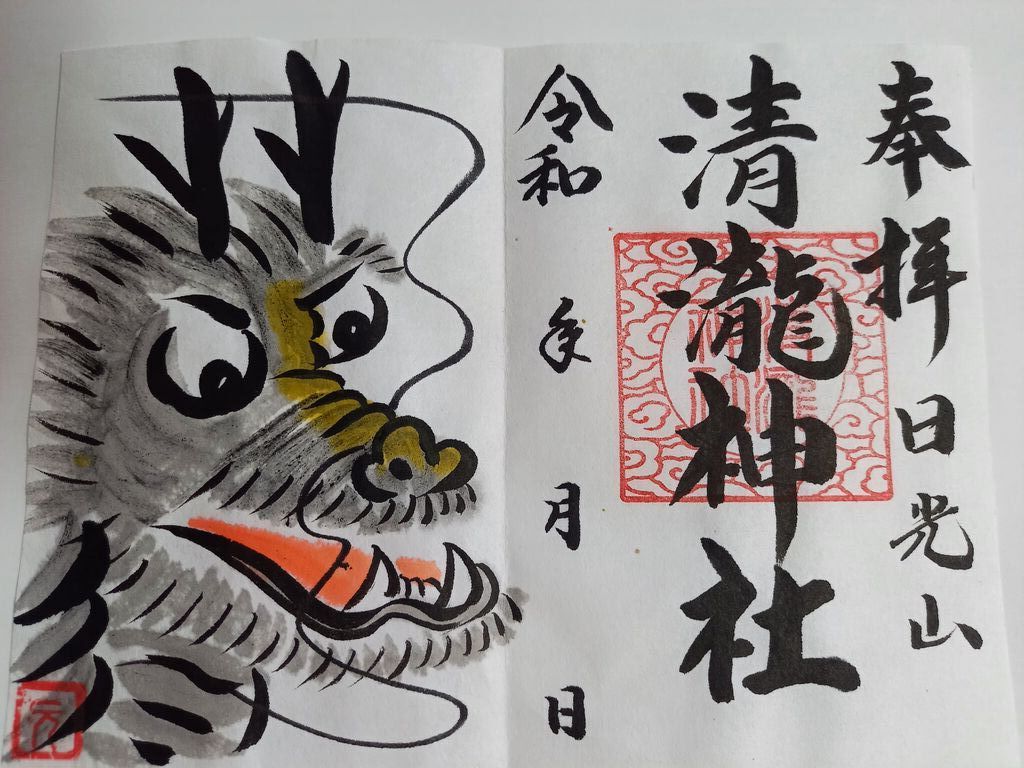 奉拝日光山
清瀧神社
令和 年 月 日